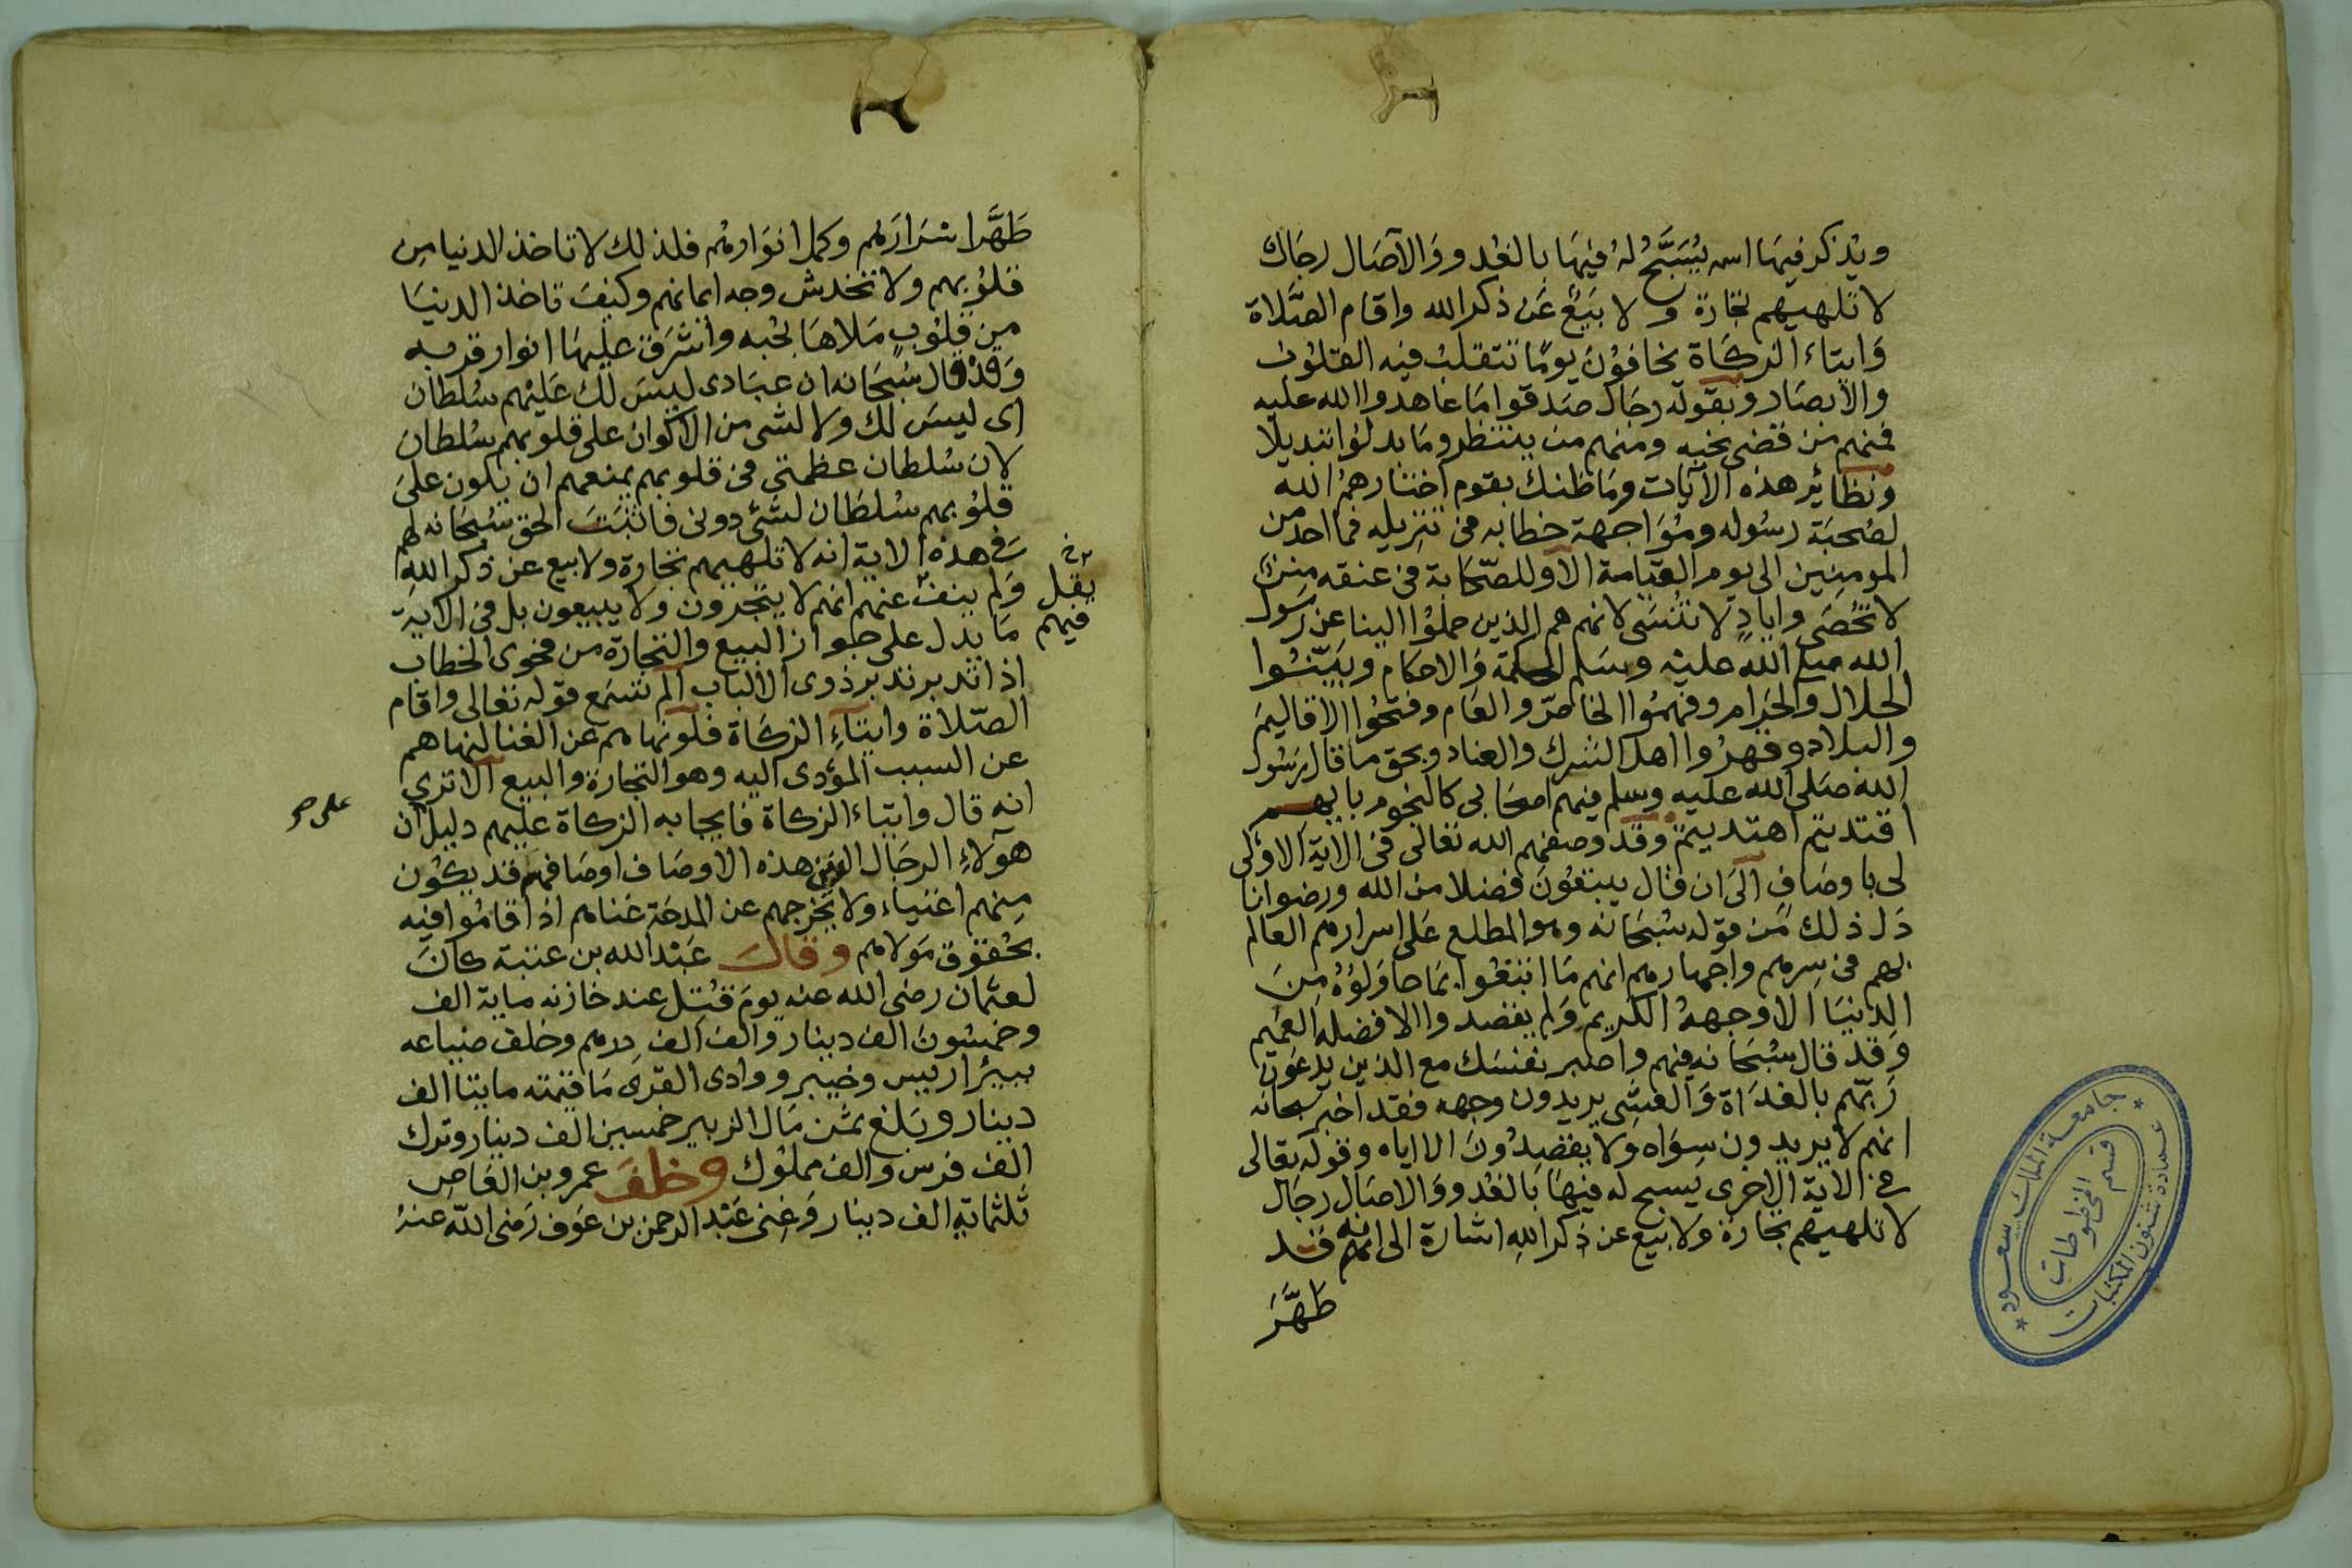 ويذكر فيها اسمه يُسَبَّحُ لَهُ فيهَا بالغُدو وَالآصَال رجَال
لا تلهيهم تجارة ولا بَيْعٌ عَن ذكر الله واقام الصَّلاة
وَايتاء الزكاة يخافوُن يومًا تتقلب فيه القلوُب
والأبصَار وبقوله رجَال صَدقوا مَا عاهدوا الله عليه
فمنهم من قضى نحبه ومنهم من ينتظر ومَا بدلوُا تبديلا
ونظائر هذه الآيات ومَا ظنك بقوم اختارهمُ الله
لصُحبَة رسُوله ومُوَاجهة خطابه فى تنزيله فما احد من
المومنين الى يوم القيامة الا وللصّحَابة فى عنقه منن
لا تُحْصَى وايادٍ لا تُنسَى لانهم هم الذين حملوُا الينا عن رَسول
الله صلى الله عليه وسَلم الحكمة وَالاحكام وبَيّنُوا
الحلال والحَرام وفهمُوا الخاصّ والعَام وفتحُوا الاقاليمَ
والبلاد وقهرُوا اهل الشرك والعناد وبحق ما قال رَسُول
الله صَلى الله عليه وسلم فيهم اصحَابى كالنجوم بايهم
اقتديتم اهتديتم وقد وصفهم الله تعالى فى الاية الاولى
لى باوصَافٍ الَى ان قال يبتغُونَ فضلا من الله ورضوانا
دَل ذلك مَن قوله سُبحَانه وهو المطلع عَلى اسرارهم العالم
بهم فى سِرهم واجهارهم انهم مَا ابتغُوا بمَا حاوَلوُهُ مِنَ
الدنيَا الا وجههُ الكريم وَلم يقصدوا الا فضله العَميم
وَقد قال سُبْحَانه فيهم واصبر نفسَك مع الذين يدعَون
رَبهم بالغدَاة وَالعَشِى يريدون وجهه فقد اخبر سبحانه
انهم لا يريدون سِوَاه وَلا يقصِدُونَ الا اياه وقوله تعالى
فى الاية الاخرى يسبح له فيهَا بالغدو وَالاصَال رجَال
لا تلهيهم تجارة وَلا بيع عن ذكر اللهِ اشارة الى انه قد
طَهَّرَ
جامعة الملك سعود
عمادة شئون المكتبات
قسم المخطوطات
طَهَّر اسرَارَهم وكمل انوَارهُم فلذلك لا تاخذ الدنيا من
قلوُبهم ولا تخدش وجه ايمانهم وكيفَ تاخذ الدنيَا
من قلوُبٍ مَلاهَا بحُبه وَاشرَقَ عليهَا انوار قربه
وَقدْ قال سُبحَانه ان عبَادى ليسَ لك عَليْهم سُلطان
اى ليسَ لك ولا لشى من الاكوان على قلوبهم سُلطان
لان سُلطان عظمتى فى قلوبهم يمنعهم ان يكون على
قلوُبهم سُلطَان لشئ دونى فاثبتَ الحق سُبحَانه لهم
فى هذه الاية انه لا تلهيهم تجارة ولا بيع عن ذكر اللهِ
وَلم ينف عنهم انهم لا يتجرون ولا يبيعون بل فى الاية
يقل
فيهم
مَا يدل على جواز البيع والتجارة من فحوى الخطاب
اذا تدبر تدبر ذوى الالباب ألم تسمَع قوله تعالى واقام
الصّلاة وايتآءِ الزكاة فلو نهاهم عن الغنا لنهاهم
عن السبب المؤدى اليه وهو التجارة والبيع الا ترى
انه قال وايتاء الزكاة فايجابه الزكاة عليهم دليل ان
هؤلاءِ الرجَال الذين هذه الاوصَاف اوصَافهم قد يكُون
منهم اغنياء ولا يخرجهم عن المدحَة غناهم اذا قامُوا فيه
بحُقوق مَولاهم وقالَ عَبْد الله بن عتبة كانَ
لعثمان رضى الله عنه يومَ قُتِل عند خازنه ماية الف
وخمسُونَ الف دينار والف الف درهم وخلف ضياعه
ببئر اريس وخيبر ووادى القرى مَا قيمته مايتا الف
دينار وبَلغ ثمَن مَال الزبير خمسين الف دينار وترك
الف فرس والف مملوُك وخلفَ عمرو بن العَاص
ثلثماية الف دينار وَغِنى عَبْد الرحمن بن عَوف رَضى الله عنهُ